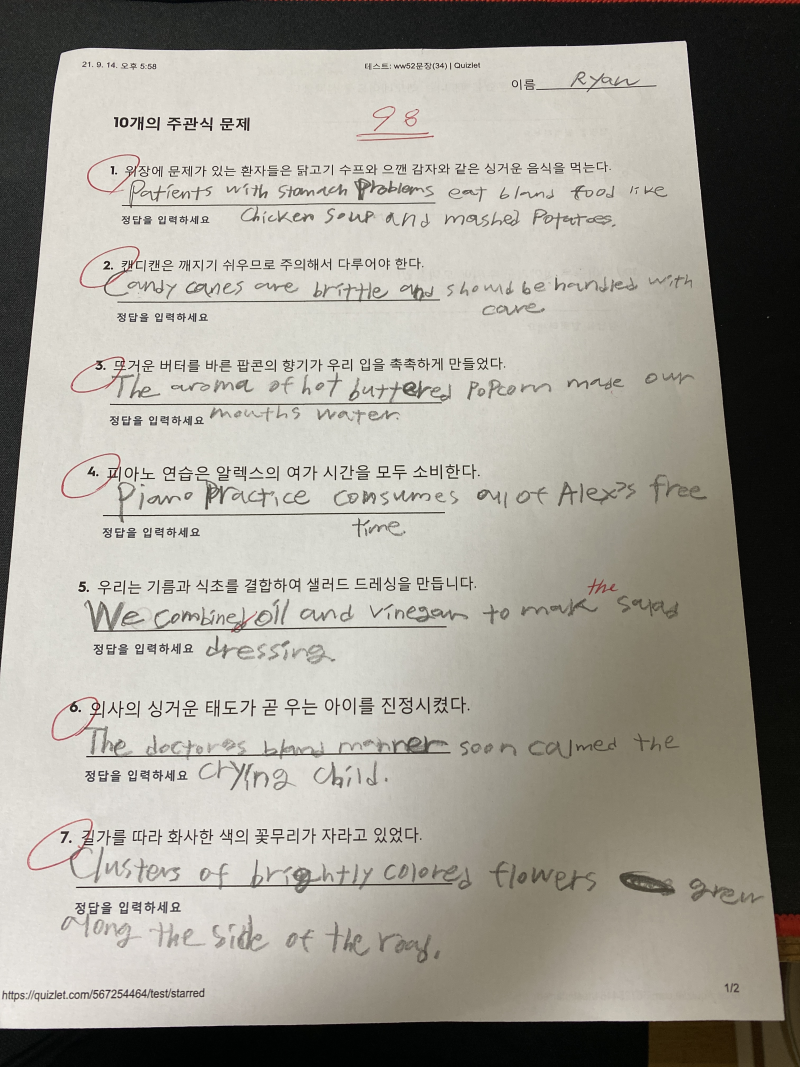 21. 9. 14. 오후 5:58
테스트: ww52문장(34) | Quizlet
이름 Ryan
10개의 주관식 문제
98
1. 위장에 문제가 있는 환자들은 닭고기 수프와 으깬 감자와 같은 싱거운 음식을 먹는다.
Patients with stomach Problems eat bland food like
정답을 입력하세요 Chicken soup and mashed Potatoes.
2. 캔디캔은 깨지기 쉬우므로 주의해서 다루어야 한다.
Candy canes are brittle and should be handled with
care
정답을 입력하세요
3. 뜨거운 버터를 바른 팝콘의 향기가 우리 입을 촉촉하게 만들었다.
The aroma of hot buttered PoPcorn made our
정답을 입력하세요 mouths water.
4. 피아노 연습은 알렉스의 여가 시간을 모두 소비한다.
Piano Practice consumes all of Alex's free
정답을 입력하세요 time.
5. 우리는 기름과 식초를 결합하여 샐러드 드레싱을 만듭니다.
the
We combined oil and vinegar to make salad
정답을 입력하세요 dressing.
6. 의사의 싱거운 태도가 곧 우는 아이를 진정시켰다.
The doctor's bland manner soon calmed the
정답을 입력하세요 crying child.
7. 길가를 따라 화사한 색의 꽃무리가 자라고 있었다.
Clusters of brightly colored flowers grew
정답을 입력하세요
along the side of the road.
https://quizlet.com/567254464/test/starred
1/2